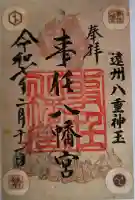 遠州八重神王
奉拝
事任八幡宮
令和七年二月十一日